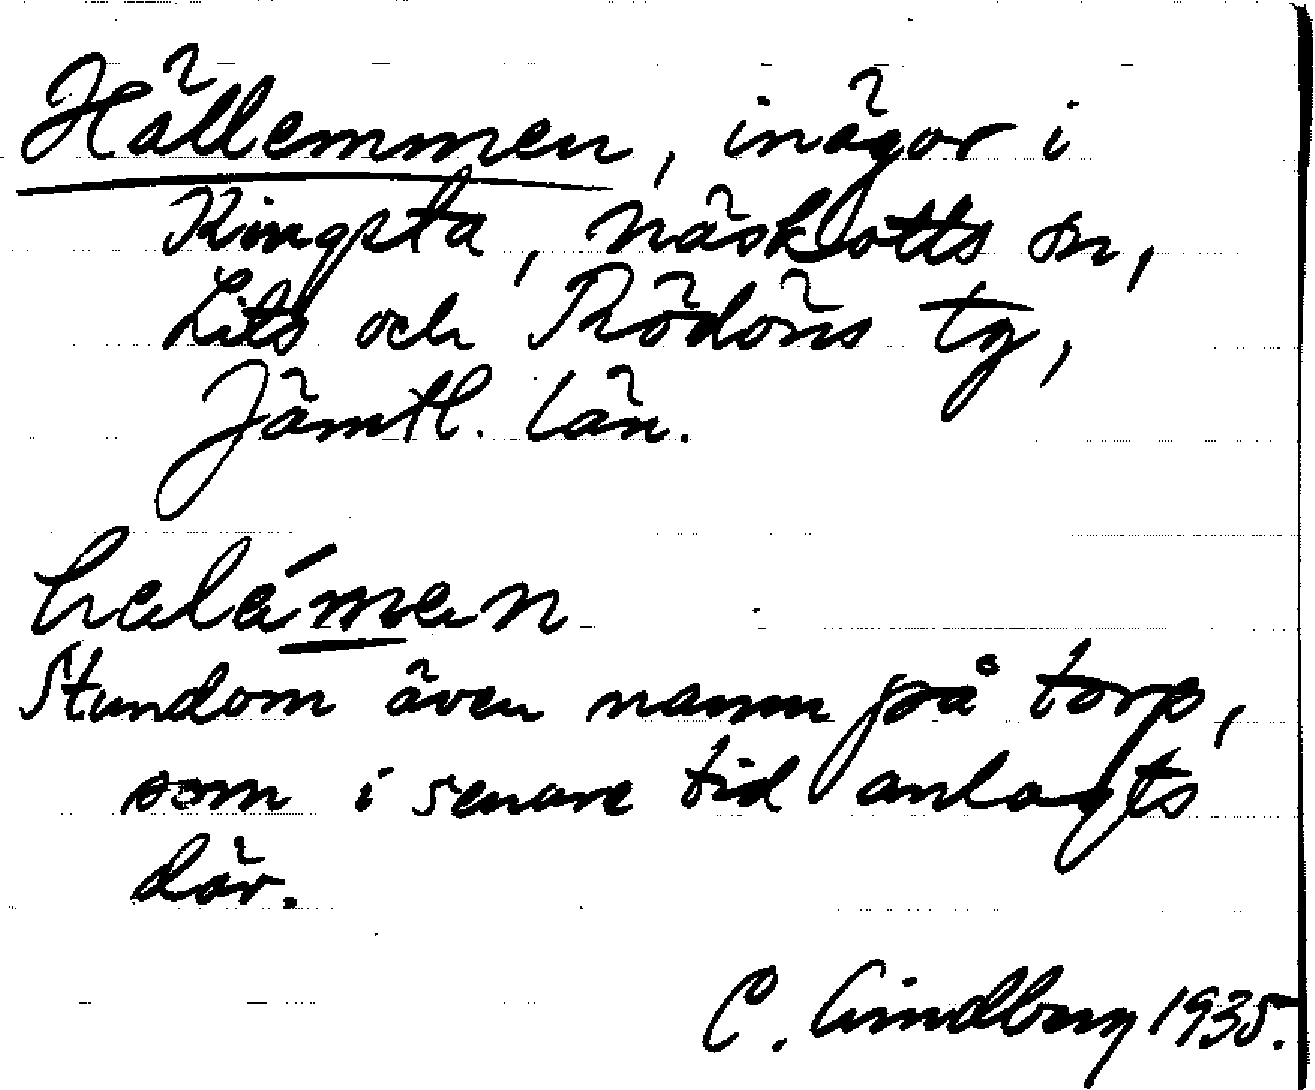 Hällemmen, inägor i
Kingsta, Näskotts sn,
Lits och Rödöns tg,
Jämtl. län.
halámen
Stundom även namn på torp,
som i senare tid anlagts
där.
C. Lindberg 1935.